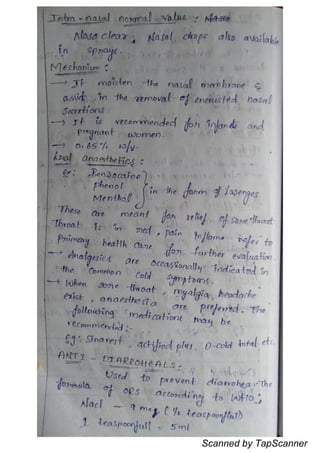 Intra-nasal normal value : Nasal
Naso clear, Nasal drops also available
in spraye.
Mechanism :
→ It moisten the nasal membrane &
assist in the removal of encrusted nasal
secretions
→ It is recommended for infants and
pregnant women.
→ 0.65% w/v.
Local anaesthetics :
Ex: Benzocaine
phenol
Menthol
in the form of lozenges
These are meant for relief of sore throat
Throat is in red, pain Inflame refer to
primary health care for further evaluation
→ Analgesics are occassionally indicated in
the common cold symptoms.
→ When sore throat, myalgia, headache
exist, anaesthesia are preferred. The
following medications may be
recommended:
Eg: Sinarest, actified plus, D-cold total etc
ANTI-DIARROHEALS:
Used to prevent diarrohea. The
formula of ORS according to WHO;
Nacl - 9 meq (½ teaspoonfull)
1 teaspoonfull = 5ml
Scanned by TapScanner